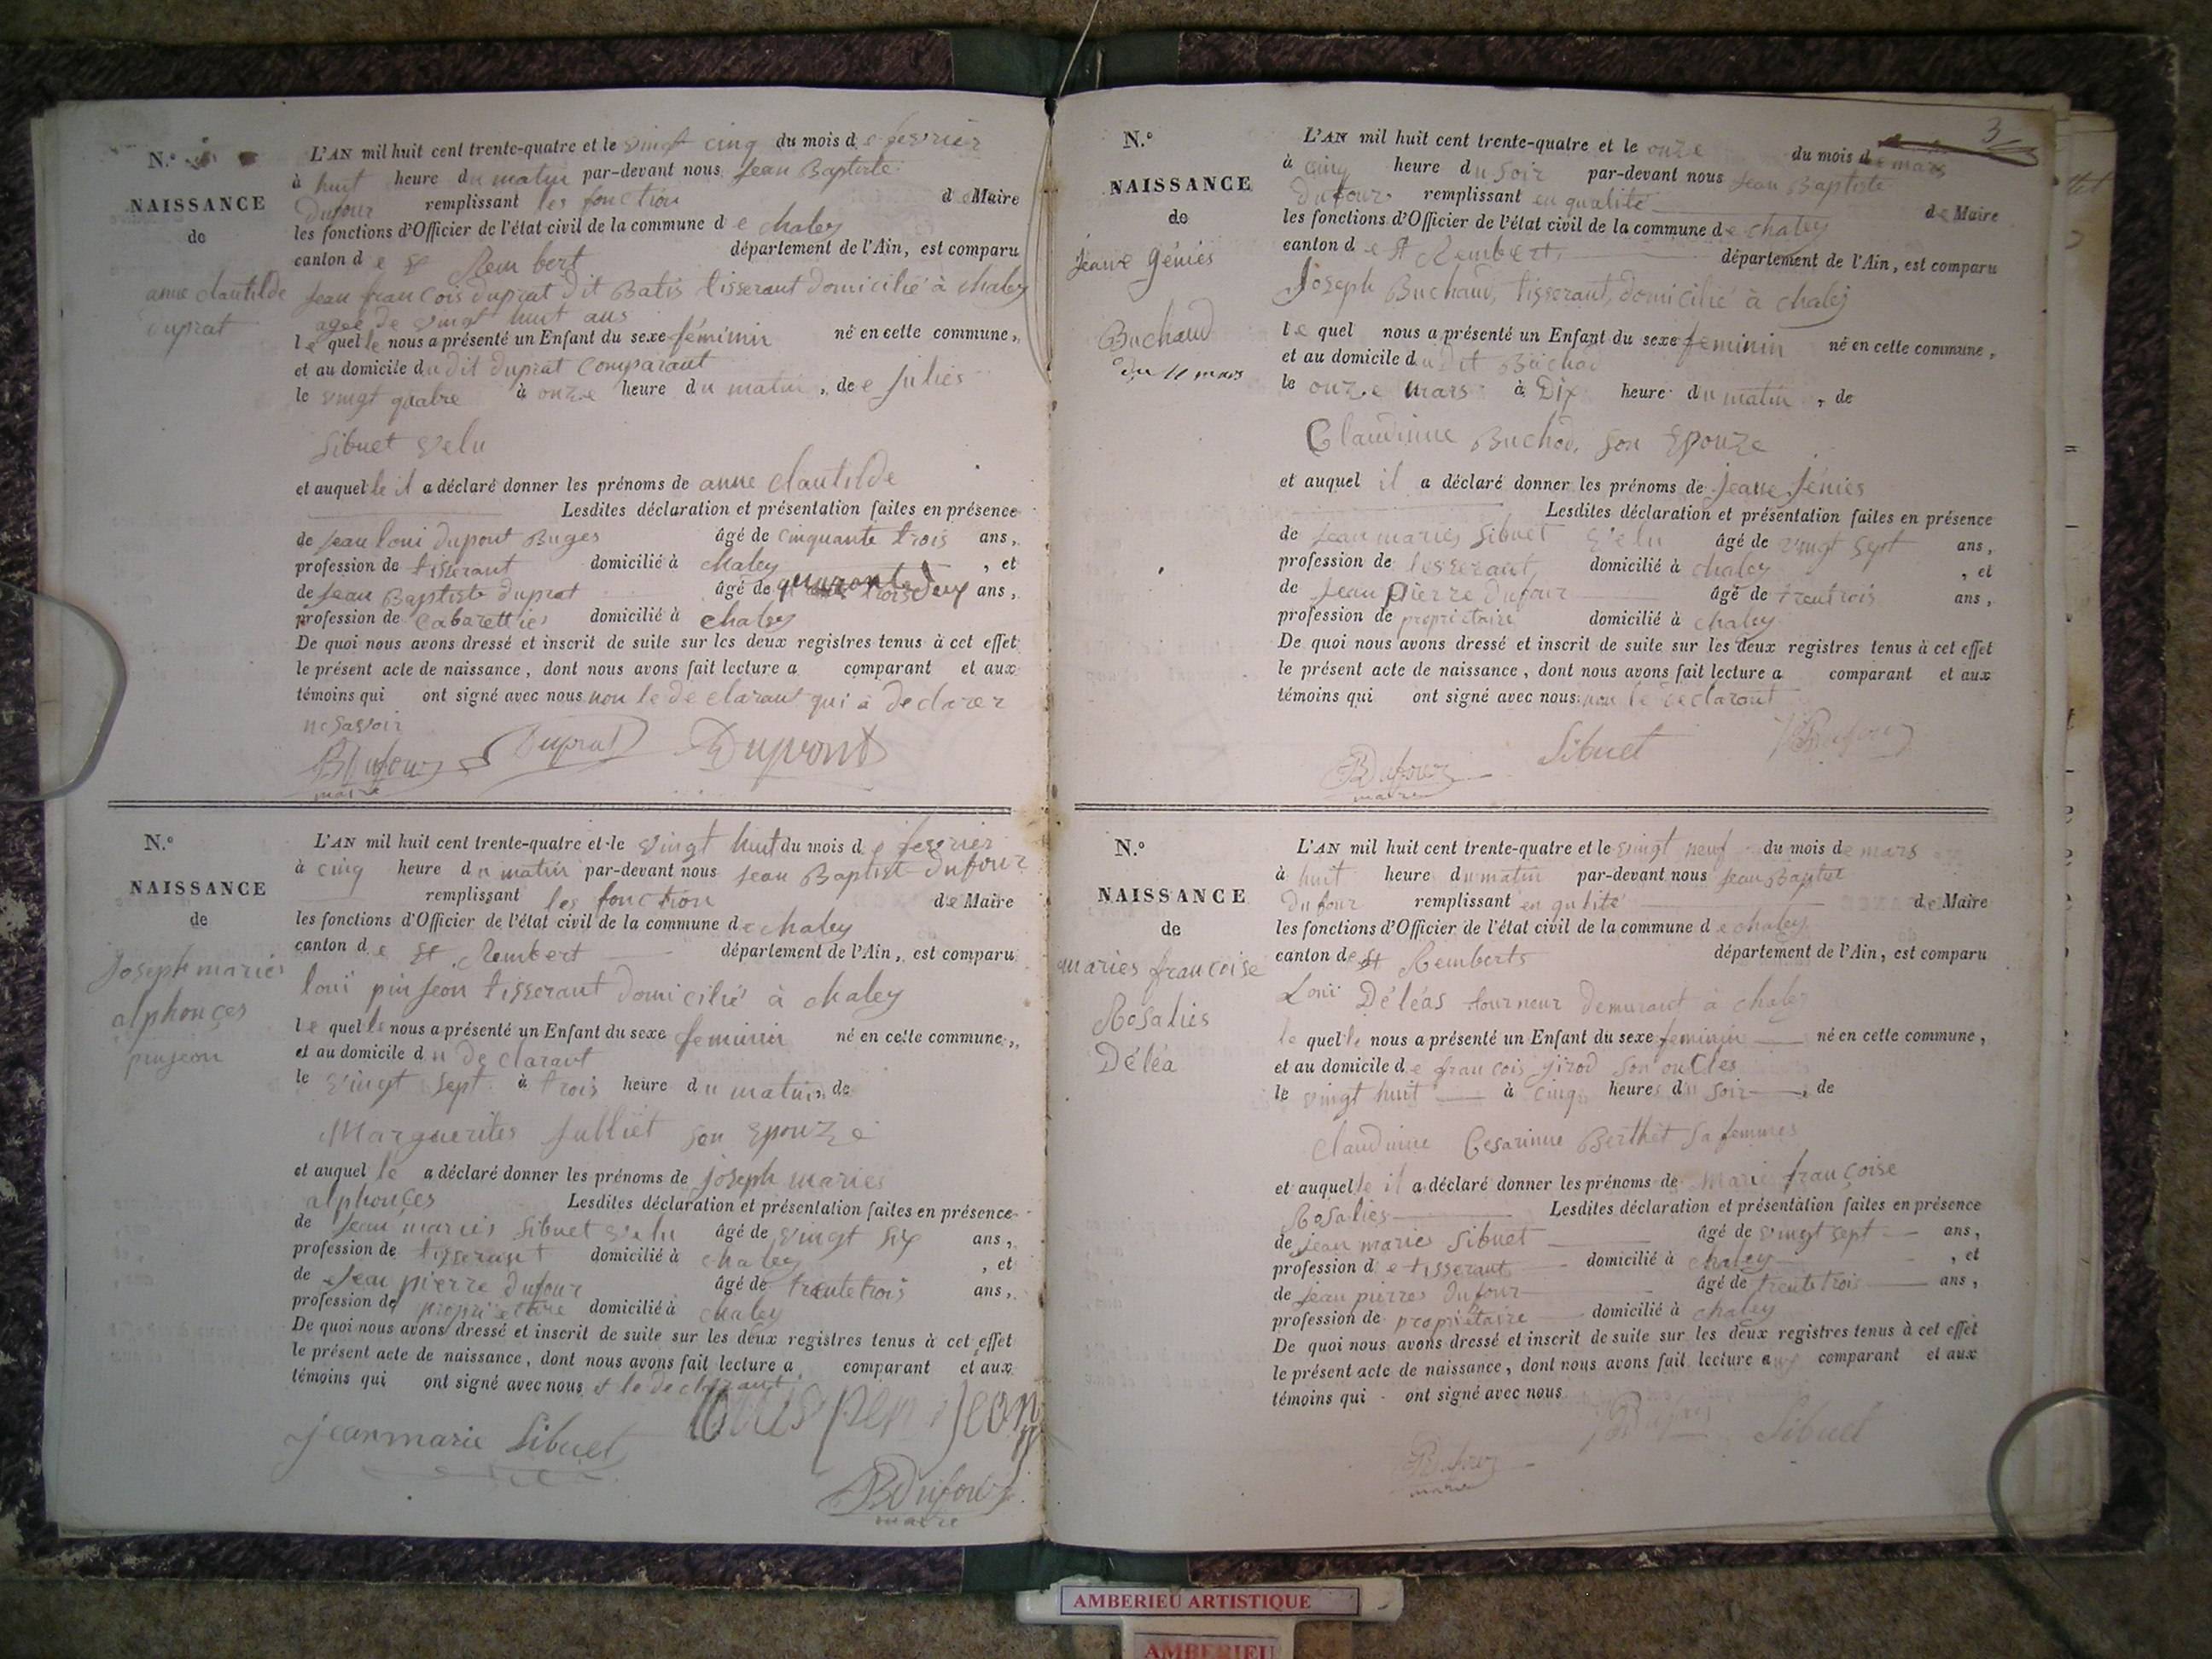 N.°
NAISSANCE
de
anne clautilde
duprat
L'AN mil huit cent trente-quatre et le vingt cinq du mois de fevrier
à huit heure du matin par-devant nous Jean Baptiste
Dufour remplissant les fonction de Maire
les fonctions d'Officier de l'état civil de la commune de chaley
canton de St Rembert département de l'Ain, est comparu
Jean francois duprat dit Batis tisserant domicilié à chaley
agee de vingt huit ans
le quelle nous a présenté un Enfant du sexe féminin né en cette commune,
et au domicile du dit duprat comparant
le vingt quatre à onze heure du matin, de Julies
Sibuet Velu
et auquelle il a déclaré donner les prénoms de anne clautilde
Lesdites déclaration et présentation faites en présence
de Jean loui dupont Buges âgé de cinquante trois ans,
profession de tisserant domicilié à chaley, et
de Jean Baptiste duprat âgé de quarante deux ans,
profession de cabarettier domicilié à chaley
De quoi nous avons dressé et inscrit de suite sur les deux registres tenus à cet effet
le présent acte de naissance, dont nous avons fait lecture a comparant et aux
témoins qui ont signé avec nous non le de clarant qui à declarer
ne savoir
BDufour Duprat Dupont
maire
N.°
NAISSANCE
de
Joseph maries
alphonces
pinjeon
L'AN mil huit cent trente-quatre et le vingt huit du mois de fevrier
à cinq heure du matin par-devant nous Jean Baptist dufour
remplissant les fonction de Maire
les fonctions d'Officier de l'état civil de la commune de chaley
canton de St Rembert département de l'Ain, est comparu
loui pinjeon tisserant domicilié à chaley
le quelle nous a présenté un Enfant du sexe feminin né en cette commune,
et au domicile du de clarant
le vingt sept à trois heure du matin, de
Marguerites Julliet son epouze
et auquel le a déclaré donner les prénoms de Joseph maries
alphonces Lesdites déclaration et présentation faites en présence
de Jean maries Sibuet Velu âgé de vingt six ans,
profession de tisserant domicilié à chaley, et
de Jean pierre dufour âgé de trente trois ans,
profession de proprietaire domicilié à chaley
De quoi nous avons dressé et inscrit de suite sur les deux registres tenus à cet effet
le présent acte de naissance, dont nous avons fait lecture a comparant et aux
témoins qui ont signé avec nous et le declarant
jeanmarie Sibuet
BDufour
maire
3
N.°
NAISSANCE
de
Jeanne Génies
Buchaud
du 11 mars
L'AN mil huit cent trente-quatre et le onze du mois de mars
à cinq heure du soir par-devant nous Jean Baptiste
Dufour remplissant en qualité de Maire
les fonctions d'Officier de l'état civil de la commune de chaley
canton de St Rembert département de l'Ain, est comparu
Joseph Buchaud, tisserant, domicilié à chaley
le quel nous a présenté un Enfant du sexe feminin né en cette commune,
et au domicile du dit Buchod
le onze mars à Dix heure du matin, de
Claudinne Buchod, son Epouze
et auquel il a déclaré donner les prénoms de Jeanne Jénies
Lesdites déclaration et présentation faites en présence
de Jean maries Sibuet Velu âgé de vingt sept ans,
profession de tisserant domicilié à chaley, et
de Jean pierre dufour âgé de trentrois ans,
profession de propriétaire domicilié à chaley
De quoi nous avons dressé et inscrit de suite sur les deux registres tenus à cet effet
le présent acte de naissance, dont nous avons fait lecture a comparant et aux
témoins qui ont signé avec nous non le declarant
BDufour Sibuet
maire
N.°
NAISSANCE
de
maries francoise
Rosalies
Déléa
L'AN mil huit cent trente-quatre et le vingt neuf du mois de mars
à huit heure du matin par-devant nous Jean Baptist
Dufour remplissant en qulité de Maire
les fonctions d'Officier de l'état civil de la commune de chaley
canton de St Remberts département de l'Ain, est comparu
Loui Déléas tourneur demurant à chaley
le quelle nous a présenté un Enfant du sexe feminin né en cette commune,
et au domicile de francois jirod son oncles
le vingt huit à cinq heures du soir, de
claudinne Cesarinne Berthet sa femmes
et auquelle il a déclaré donner les prénoms de Marie françoise
Rosalies Lesdites déclaration et présentation faites en présence
de Jean maries Sibuet âgé de vingt sept ans,
profession de tisserant domicilié à chaley, et
de Jean pierres dufour âgé de trente trois ans,
profession de propriétaire domicilié à chaley
De quoi nous avons dressé et inscrit de suite sur les deux registres tenus à cet effet
le présent acte de naissance, dont nous avons fait lecture aux comparant et aux
témoins qui ont signé avec nous
Sibuet
BDufour
maire
AMBERIEU ARTISTIQUE
AMBERIEU